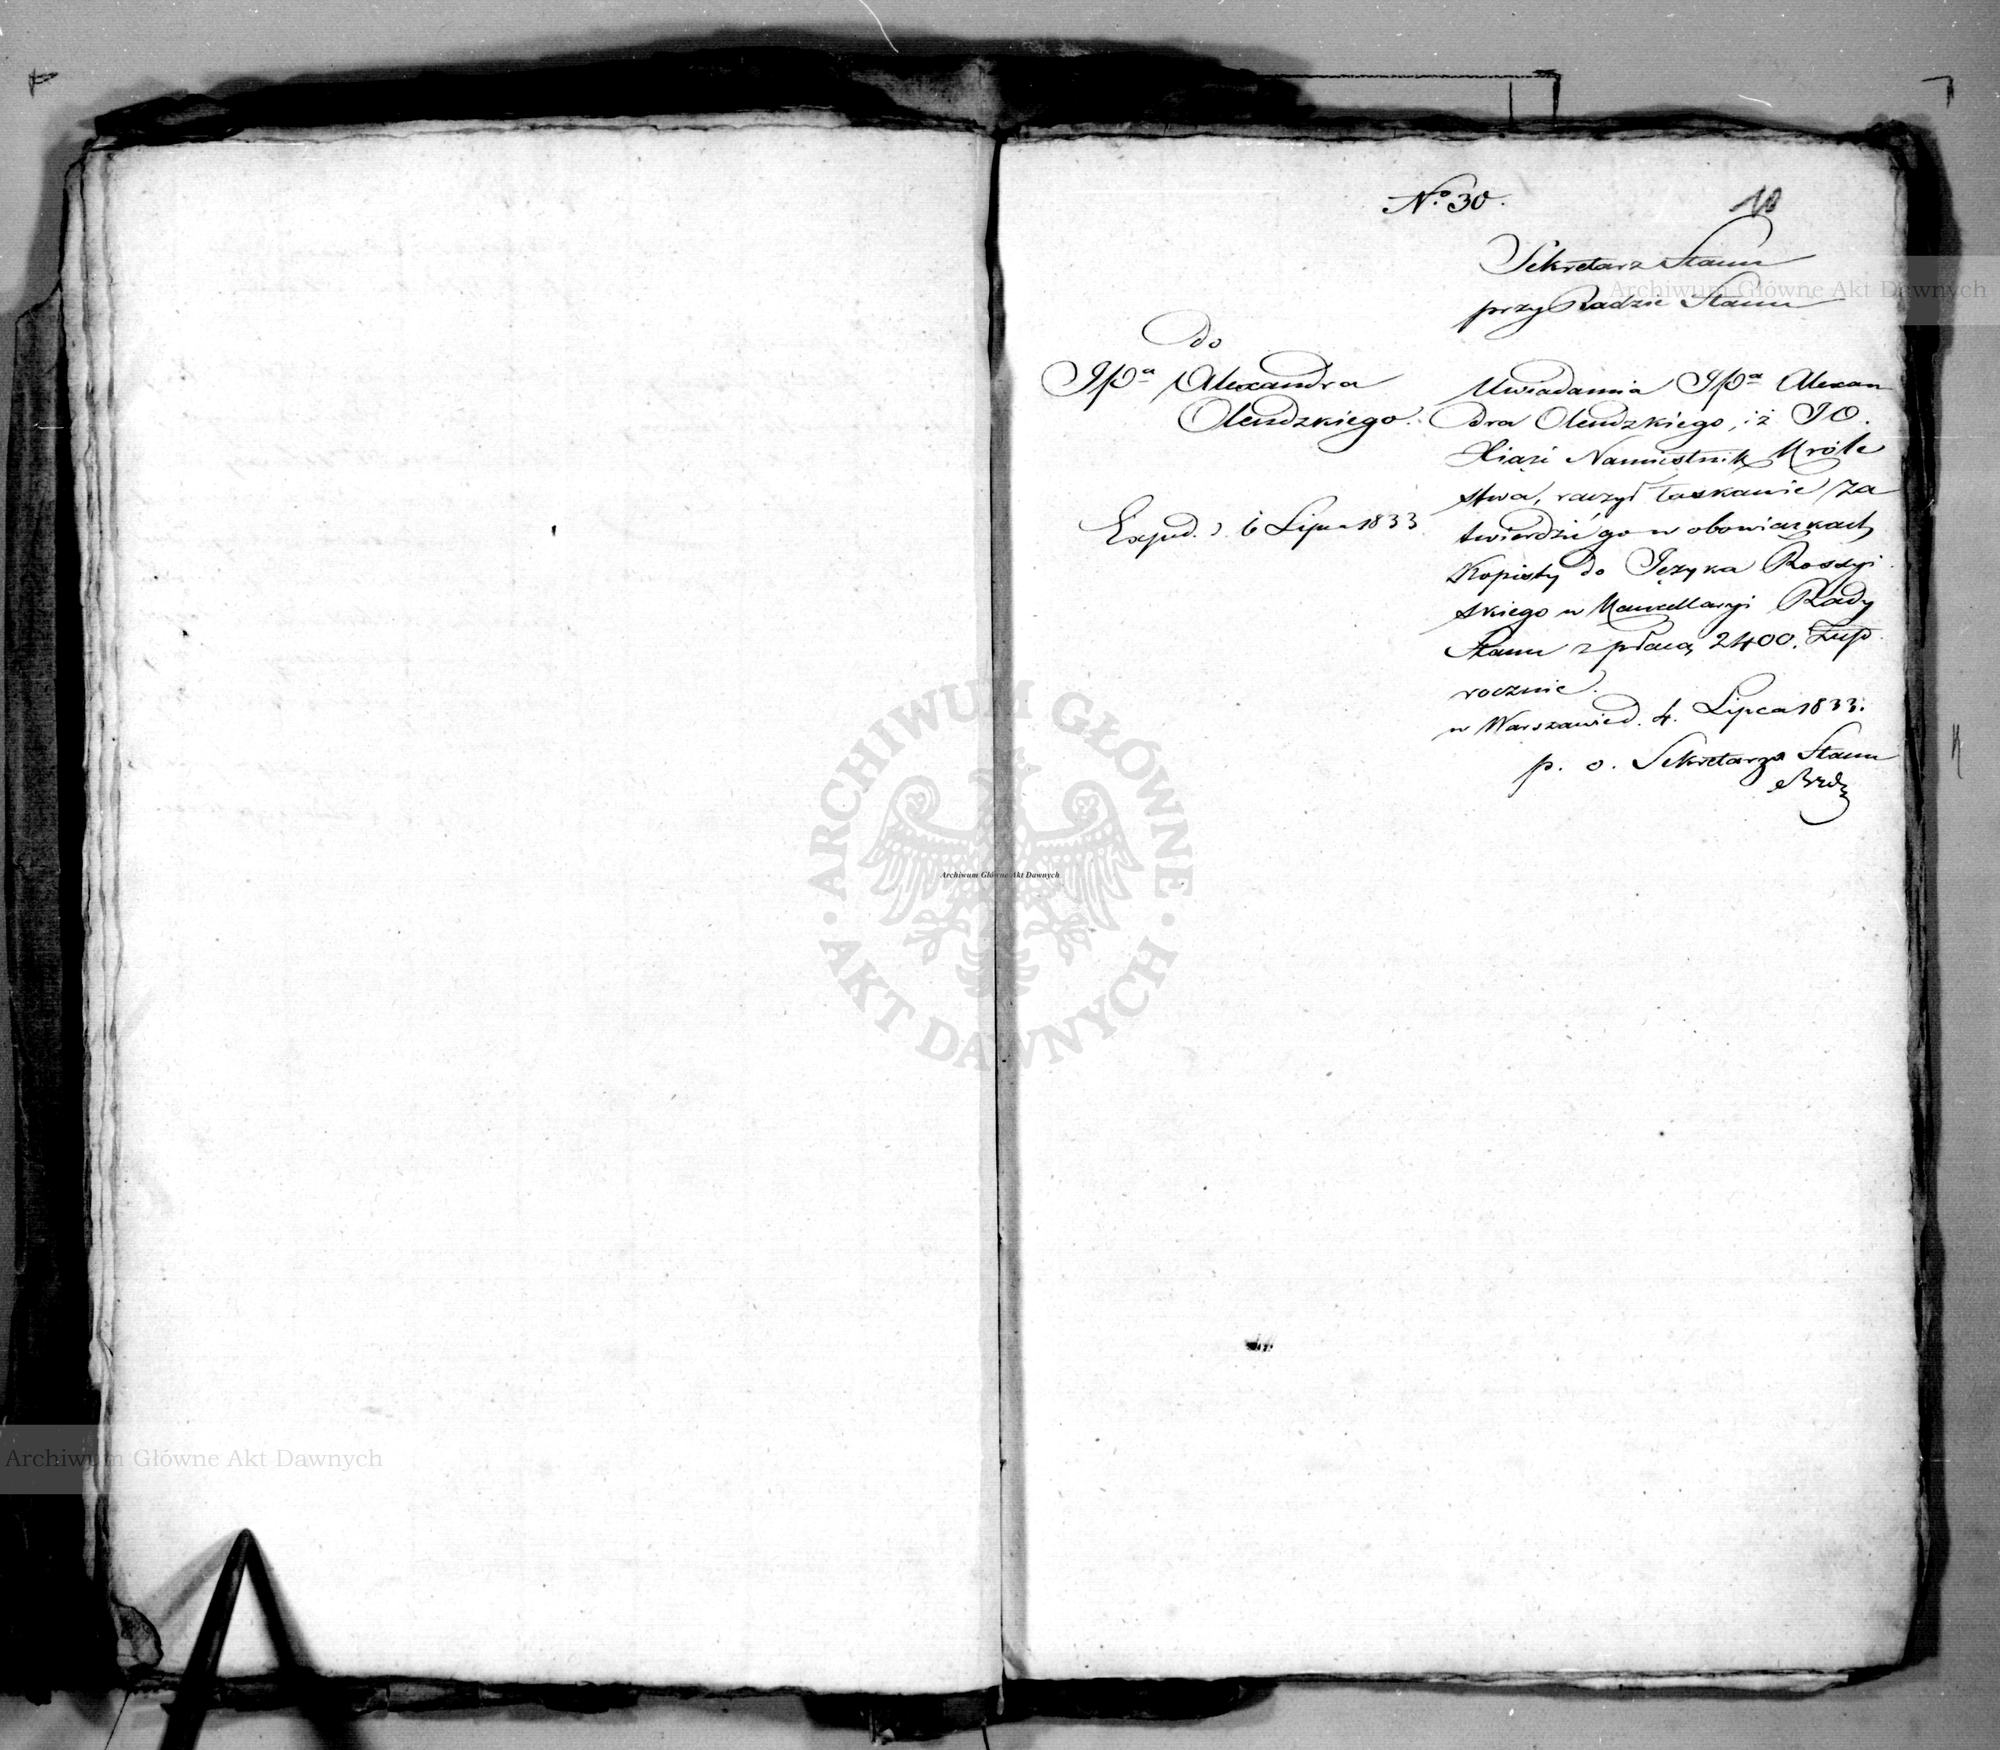 No. 30.
10
Sekretarz Stanu
przy Radzie Stanu
do
JPa Alexandra
Olendzkiego.
Exped. d. 6 Lipca 1833
Uwiadamia JPa Alexan
dra Olendzkiego, iż JO.
Xiąże Namiestnik Króle
stwa, raczył łaskawie za
twierdzić go w obowiązkach
Kopisty do Języka Rossyi
skiego w Kancellaryi Rady
Stanu z płacą 2400. Złp.
rocznie.
w Warszawie d. 4. Lipca 1833.
p. o. Sekretarza Stanu
ARCHIWUM GŁÓWNE
AKT DAWNYCH
Archiwum Główne Akt Dawnych
Archiwum Główne Akt Dawnych
Archiwum Główne Akt Dawnych